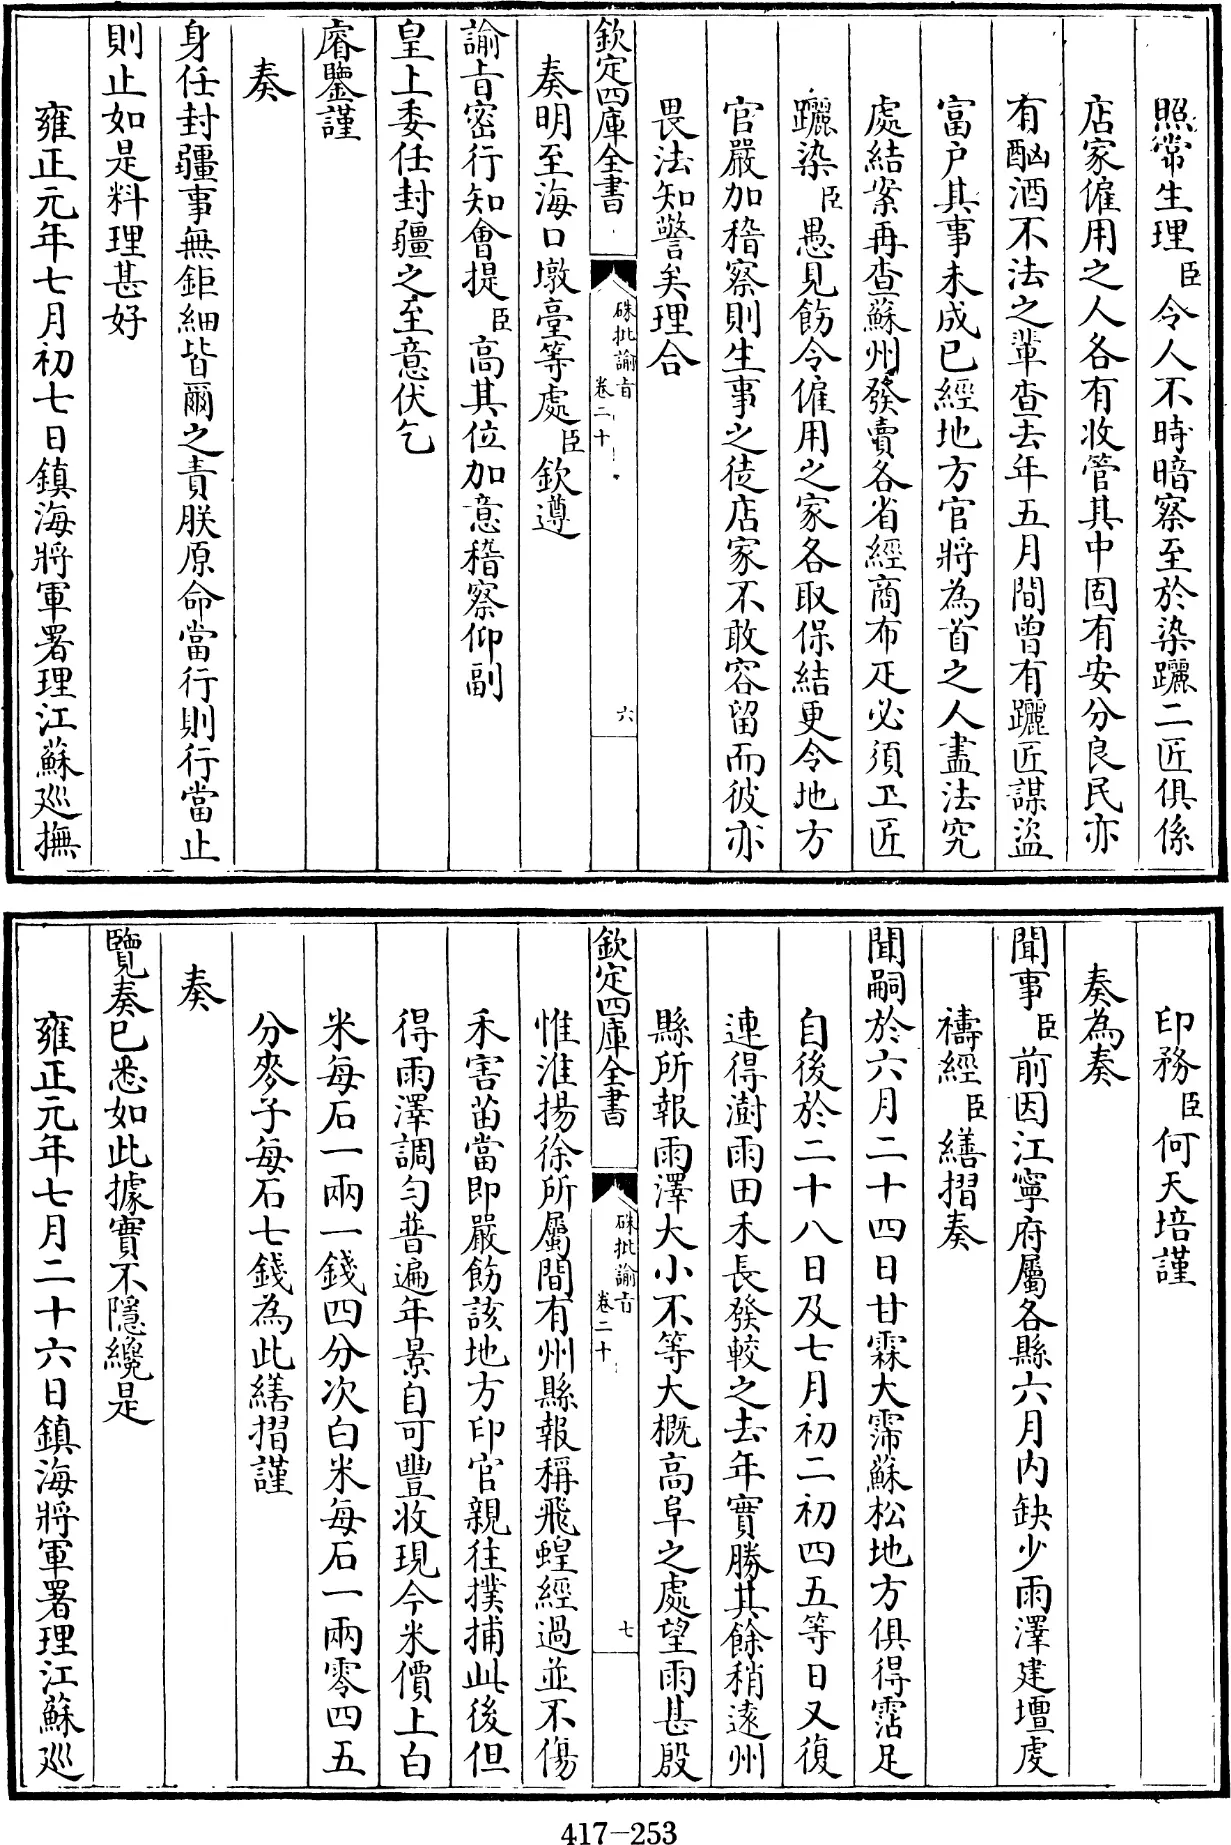 照常生理臣令人不時暗察至於染躧二匠俱係
店家僱用之人各有收管其中固有安分良民亦
有酗酒不法之輩查去年五月間曾有躧匠謀盜
富戶其事未成已經地方官將為首之人盡法究
處結案再查蘇州發賣各省經商布疋必須工匠
躧染臣愚見飭令僱用之家各取保結更令地方
官嚴加稽察則生事之徒店家不敢容留而彼亦
畏法知警矣理合
欽定四庫全書
硃批諭旨
卷二十
六
奏明至海口墩臺等處臣欽遵
諭旨密行知會提臣高其位加意稽察仰副
皇上委任封疆之至意伏乞
睿鑒謹
奏
身任封疆事無鉅細皆爾之責朕原命當行則行當止
則止如是料理甚好
雍正元年七月初七日鎮海將軍署理江蘇廵撫
印務臣何天培謹
奏為奏
聞事臣前因江寧府屬各縣六月內缺少雨澤建壇虔
禱經臣繕摺奏
聞嗣於六月二十四日甘霖大霈蘇松地方俱得霑足
自後於二十八日及七月初二初四五等日又復
連得澍雨田禾長發較之去年實勝其餘稍遠州
縣所報雨澤大小不等大概高阜之處望雨甚殷
欽定四庫全書
硃批諭旨
卷二十
七
惟淮揚徐所屬間有州縣報稱飛蝗經過並不傷
禾害苗當即嚴飭該地方印官親往撲捕此後但
得雨澤調勻普遍年景自可豐收現今米價上白
米每石一兩一錢四分次白米每石一兩零四五
分麥子每石七錢為此繕摺謹
奏
覽奏已悉如此據實不隱纔是
雍正元年七月二十六日鎮海將軍署理江蘇廵
417-253